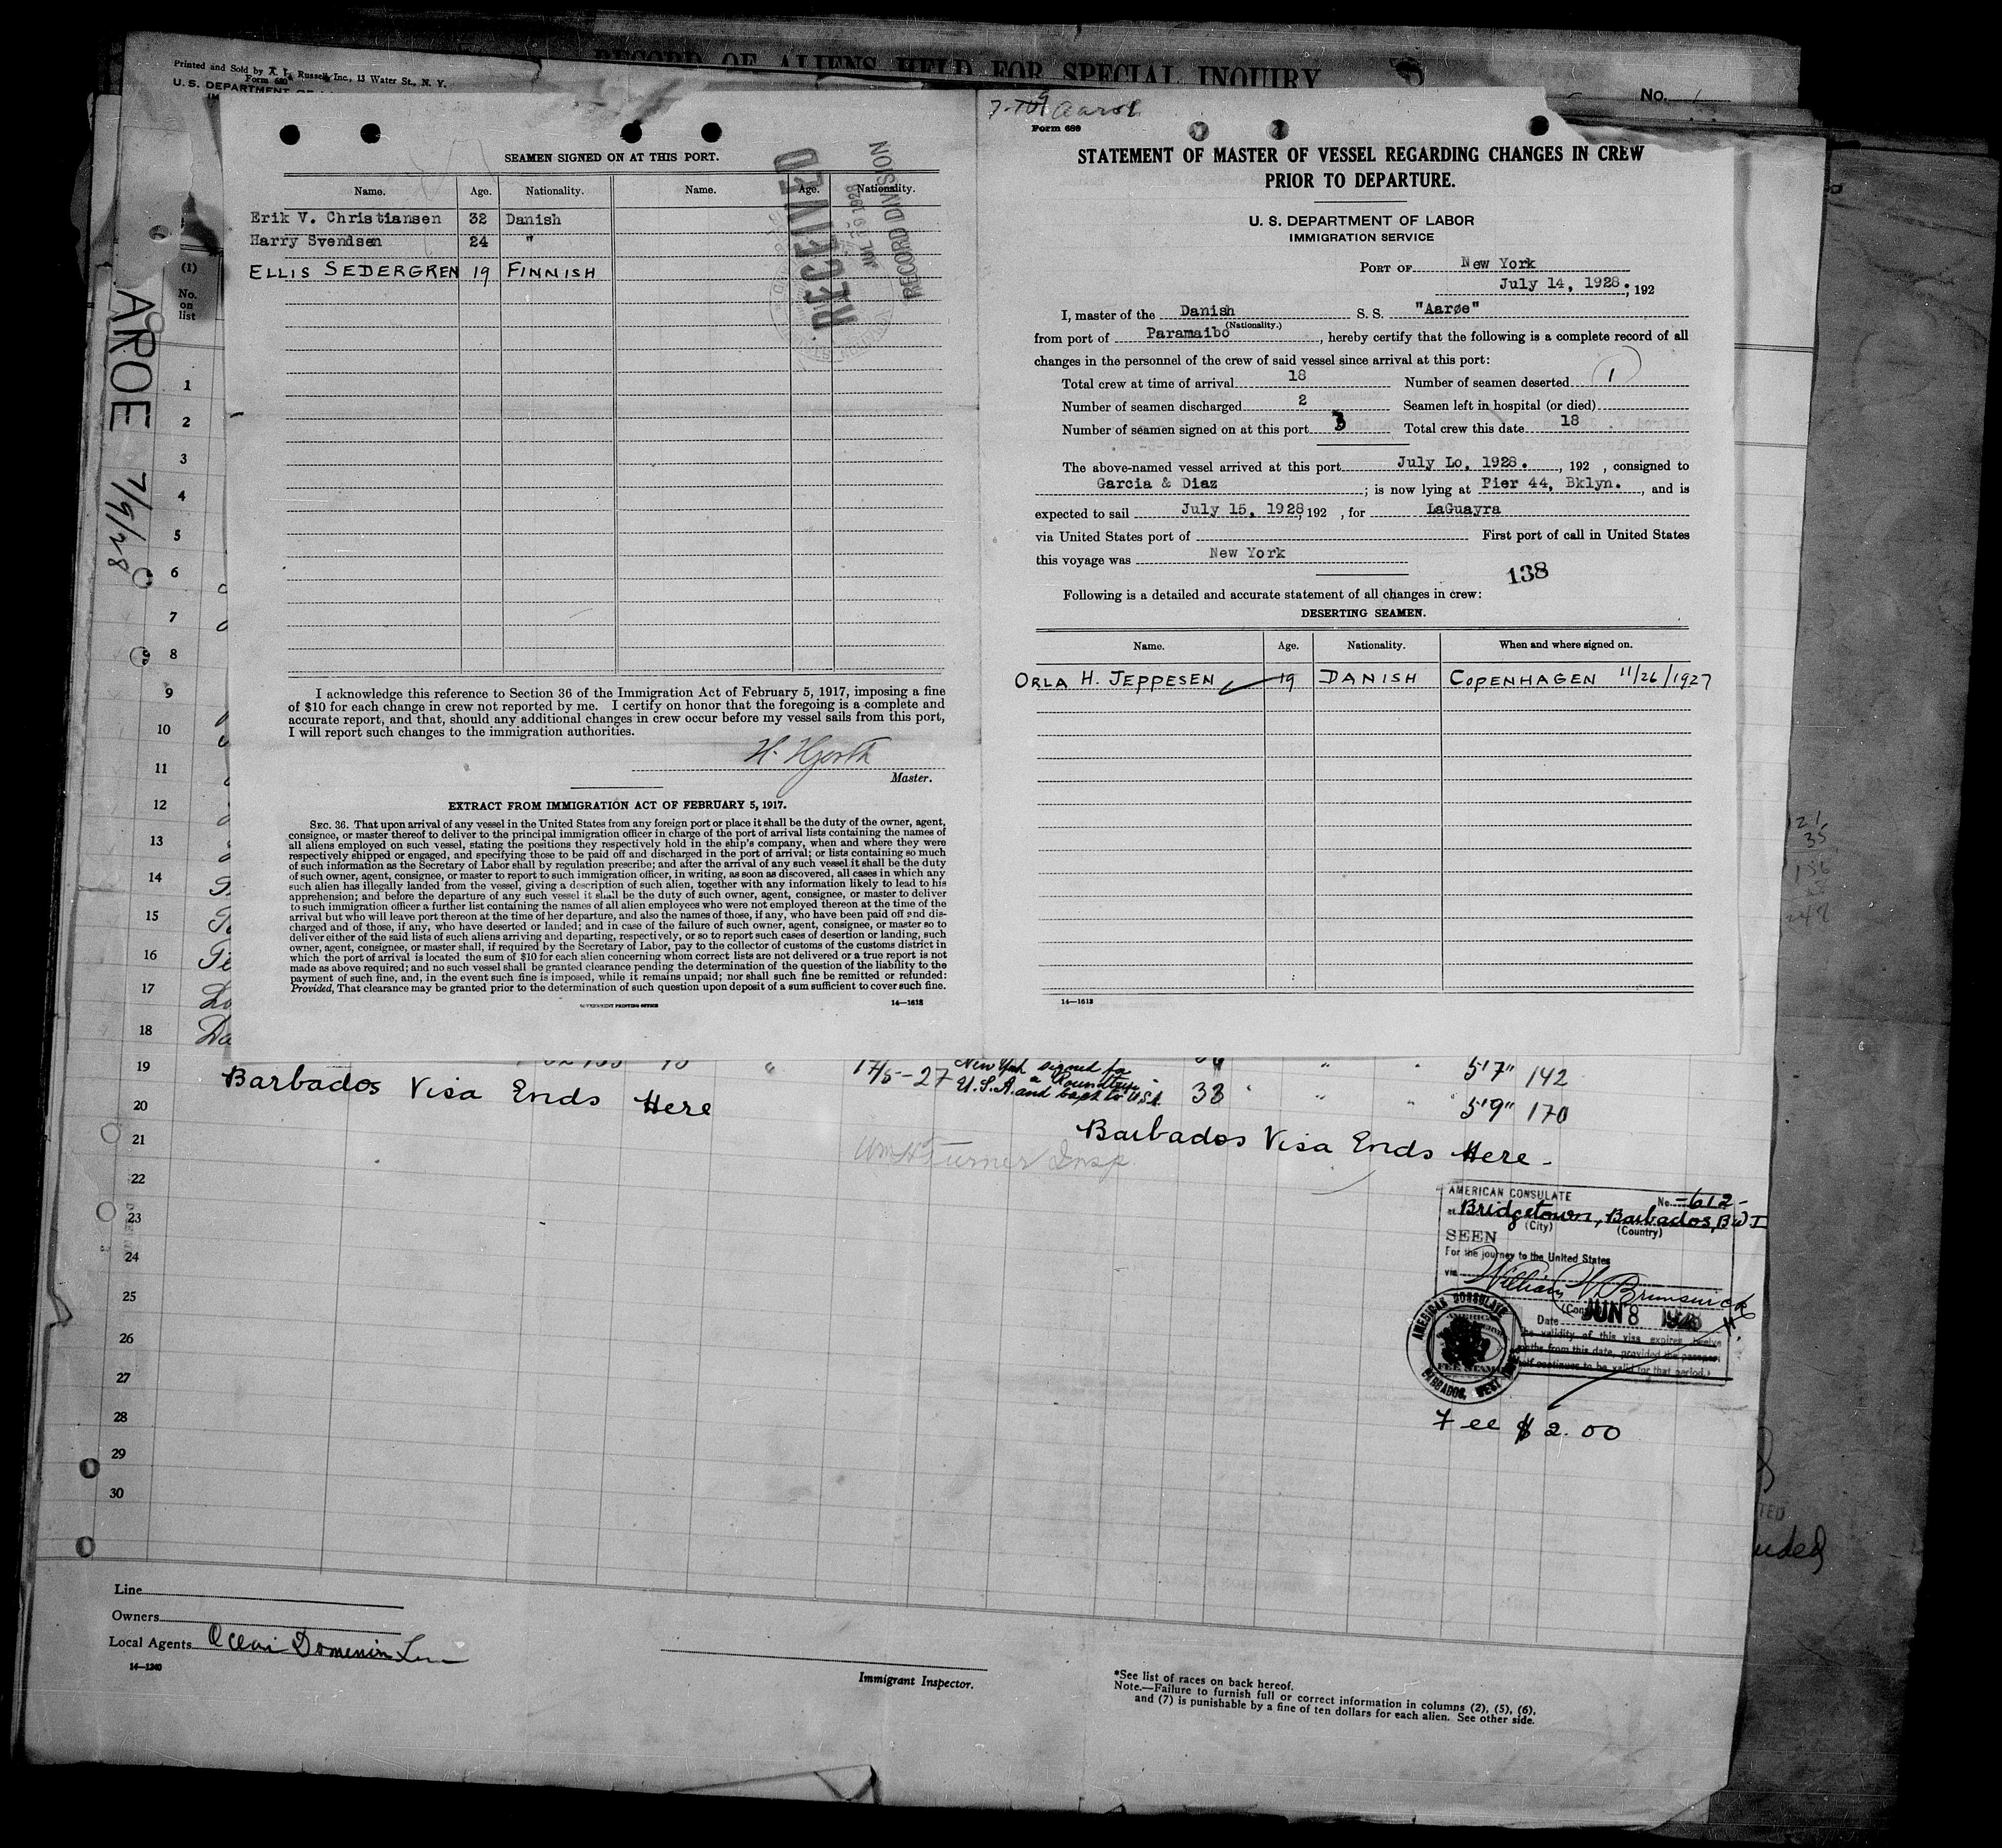 RECORD OF ALIENS HELD FOR SPECIAL INQUIRY
No. 1
Printed and Sold by A. L. Russell, Inc., 13 Water St., N. Y.
Form 680
U. S. DEPARTMENT OF
SEAMEN SIGNED ON AT THIS PORT.
Name. Age. Nationality. Name. Age. Nationality.
Erik V. Christiansen 32 Danish
Harry Svendsen 24 "
ELLIS SEDERGREN 19 FINNISH
RECEIVED
JUL 19 1928
RECORD DIVISION
I acknowledge this reference to Section 36 of the Immigration Act of February 5, 1917, imposing a fine
of $10 for each change in crew not reported by me. I certify on honor that the foregoing is a complete and
accurate report, and that, should any additional changes in crew occur before my vessel sails from this port,
I will report such changes to the immigration authorities.
H. Hjorth
Master.
EXTRACT FROM IMMIGRATION ACT OF FEBRUARY 5, 1917.
SEC. 36. That upon arrival of any vessel in the United States from any foreign port or place it shall be the duty of the owner, agent,
consignee, or master thereof to deliver to the principal immigration officer in charge of the port of arrival lists containing the names of
all aliens employed on such vessel, stating the positions they respectively hold in the ship's company, when and where they were
respectively shipped or engaged, and specifying those to be paid off and discharged in the port of arrival; or lists containing so much
of such information as the Secretary of Labor shall by regulation prescribe; and after the arrival of any such vessel it shall be the duty
of such owner, agent, consignee, or master to report to such immigration officer, in writing, as soon as discovered, all cases in which any
such alien has illegally landed from the vessel, giving a description of such alien, together with any information likely to lead to his
apprehension; and before the departure of any such vessel it shall be the duty of such owner, agent, consignee, or master to deliver
to such immigration officer a further list containing the names of all alien employees who were not employed thereon at the time of the
arrival but who will leave port thereon at the time of her departure, and also the names of those, if any, who have been paid off and dis-
charged and of those, if any, who have deserted or landed; and in case of the failure of such owner, agent, consignee, or master so to
deliver either of the said lists of such aliens arriving and departing, respectively, or so to report such cases of desertion or landing, such
owner, agent, consignee, or master shall, if required by the Secretary of Labor, pay to the collector of customs of the customs district in
which the port of arrival is located the sum of $10 for each alien concerning whom correct lists are not delivered or a true report is not
made as above required; and no such vessel shall be granted clearance pending the determination of the question of the liability to the
payment of such fine, and, in the event such fine is imposed, while it remains unpaid; nor shall such fine be remitted or refunded:
Provided, That clearance may be granted prior to the determination of such question upon deposit of a sum sufficient to cover such fine.
GOVERNMENT PRINTING OFFICE
14—1613
Aaroe
Form 689
STATEMENT OF MASTER OF VESSEL REGARDING CHANGES IN CREW
PRIOR TO DEPARTURE.
U. S. DEPARTMENT OF LABOR
IMMIGRATION SERVICE
PORT OF New York
July 14, 1928. , 192
I, master of the Danish S. S. "Aarøe"
(Nationality.)
from port of Paramaibo , hereby certify that the following is a complete record of all
changes in the personnel of the crew of said vessel since arrival at this port:
Total crew at time of arrival 18 Number of seamen deserted 1
Number of seamen discharged 2 Seamen left in hospital (or died)
Number of seamen signed on at this port 3 Total crew this date 18
The above-named vessel arrived at this port July Lo, 1928. , 192 , consigned to
Garcia & Diaz ; is now lying at Pier 44, Bklyn. , and is
expected to sail July 15, 1928, 192 , for LaGuayra
via United States port of First port of call in United States
this voyage was New York
138
Following is a detailed and accurate statement of all changes in crew:
DESERTING SEAMEN.
Name. Age. Nationality. When and where signed on.
ORLA H. JEPPESEN 19 DANISH COPENHAGEN 11/26/1927
14—1613
AROE 7/9/28
(1)
No.
on
list
1
2
3
4
5
6
7
8
9
10
11
12
13
14
15
16
17
18
19
20
21
22
23
24
25
26
27
28
29
30
17/5-27 New York signed for
a Roundtrip
U.S.A. and back to U.S.A.
5'7" 142
33 " " " 5'9" 170
Barbados Visa Ends Here
Barbados Visa Ends Here -
Wm H Turner Insp.
AMERICAN CONSULATE No. -612-
at Bridgetown, Barbados, B.W.I
(City) (Country)
SEEN
For the journey to the United States
via
William W. Brunswick
Date JUN 8 1928
The validity of this visa expires twelve
months from this date, provided the passport
itself continues to be valid for that period.
AMERICAN CONSULATE
BARBADOS, WEST INDIES
AMERICAN
FEE STAMP
Fee $ 2.00
121
35
156
Line
Owners
Local Agents
14—1240
Immigrant Inspector.
*See list of races on back hereof.
Note.—Failure to furnish full or correct information in columns (2), (5), (6),
and (7) is punishable by a fine of ten dollars for each alien. See other side.